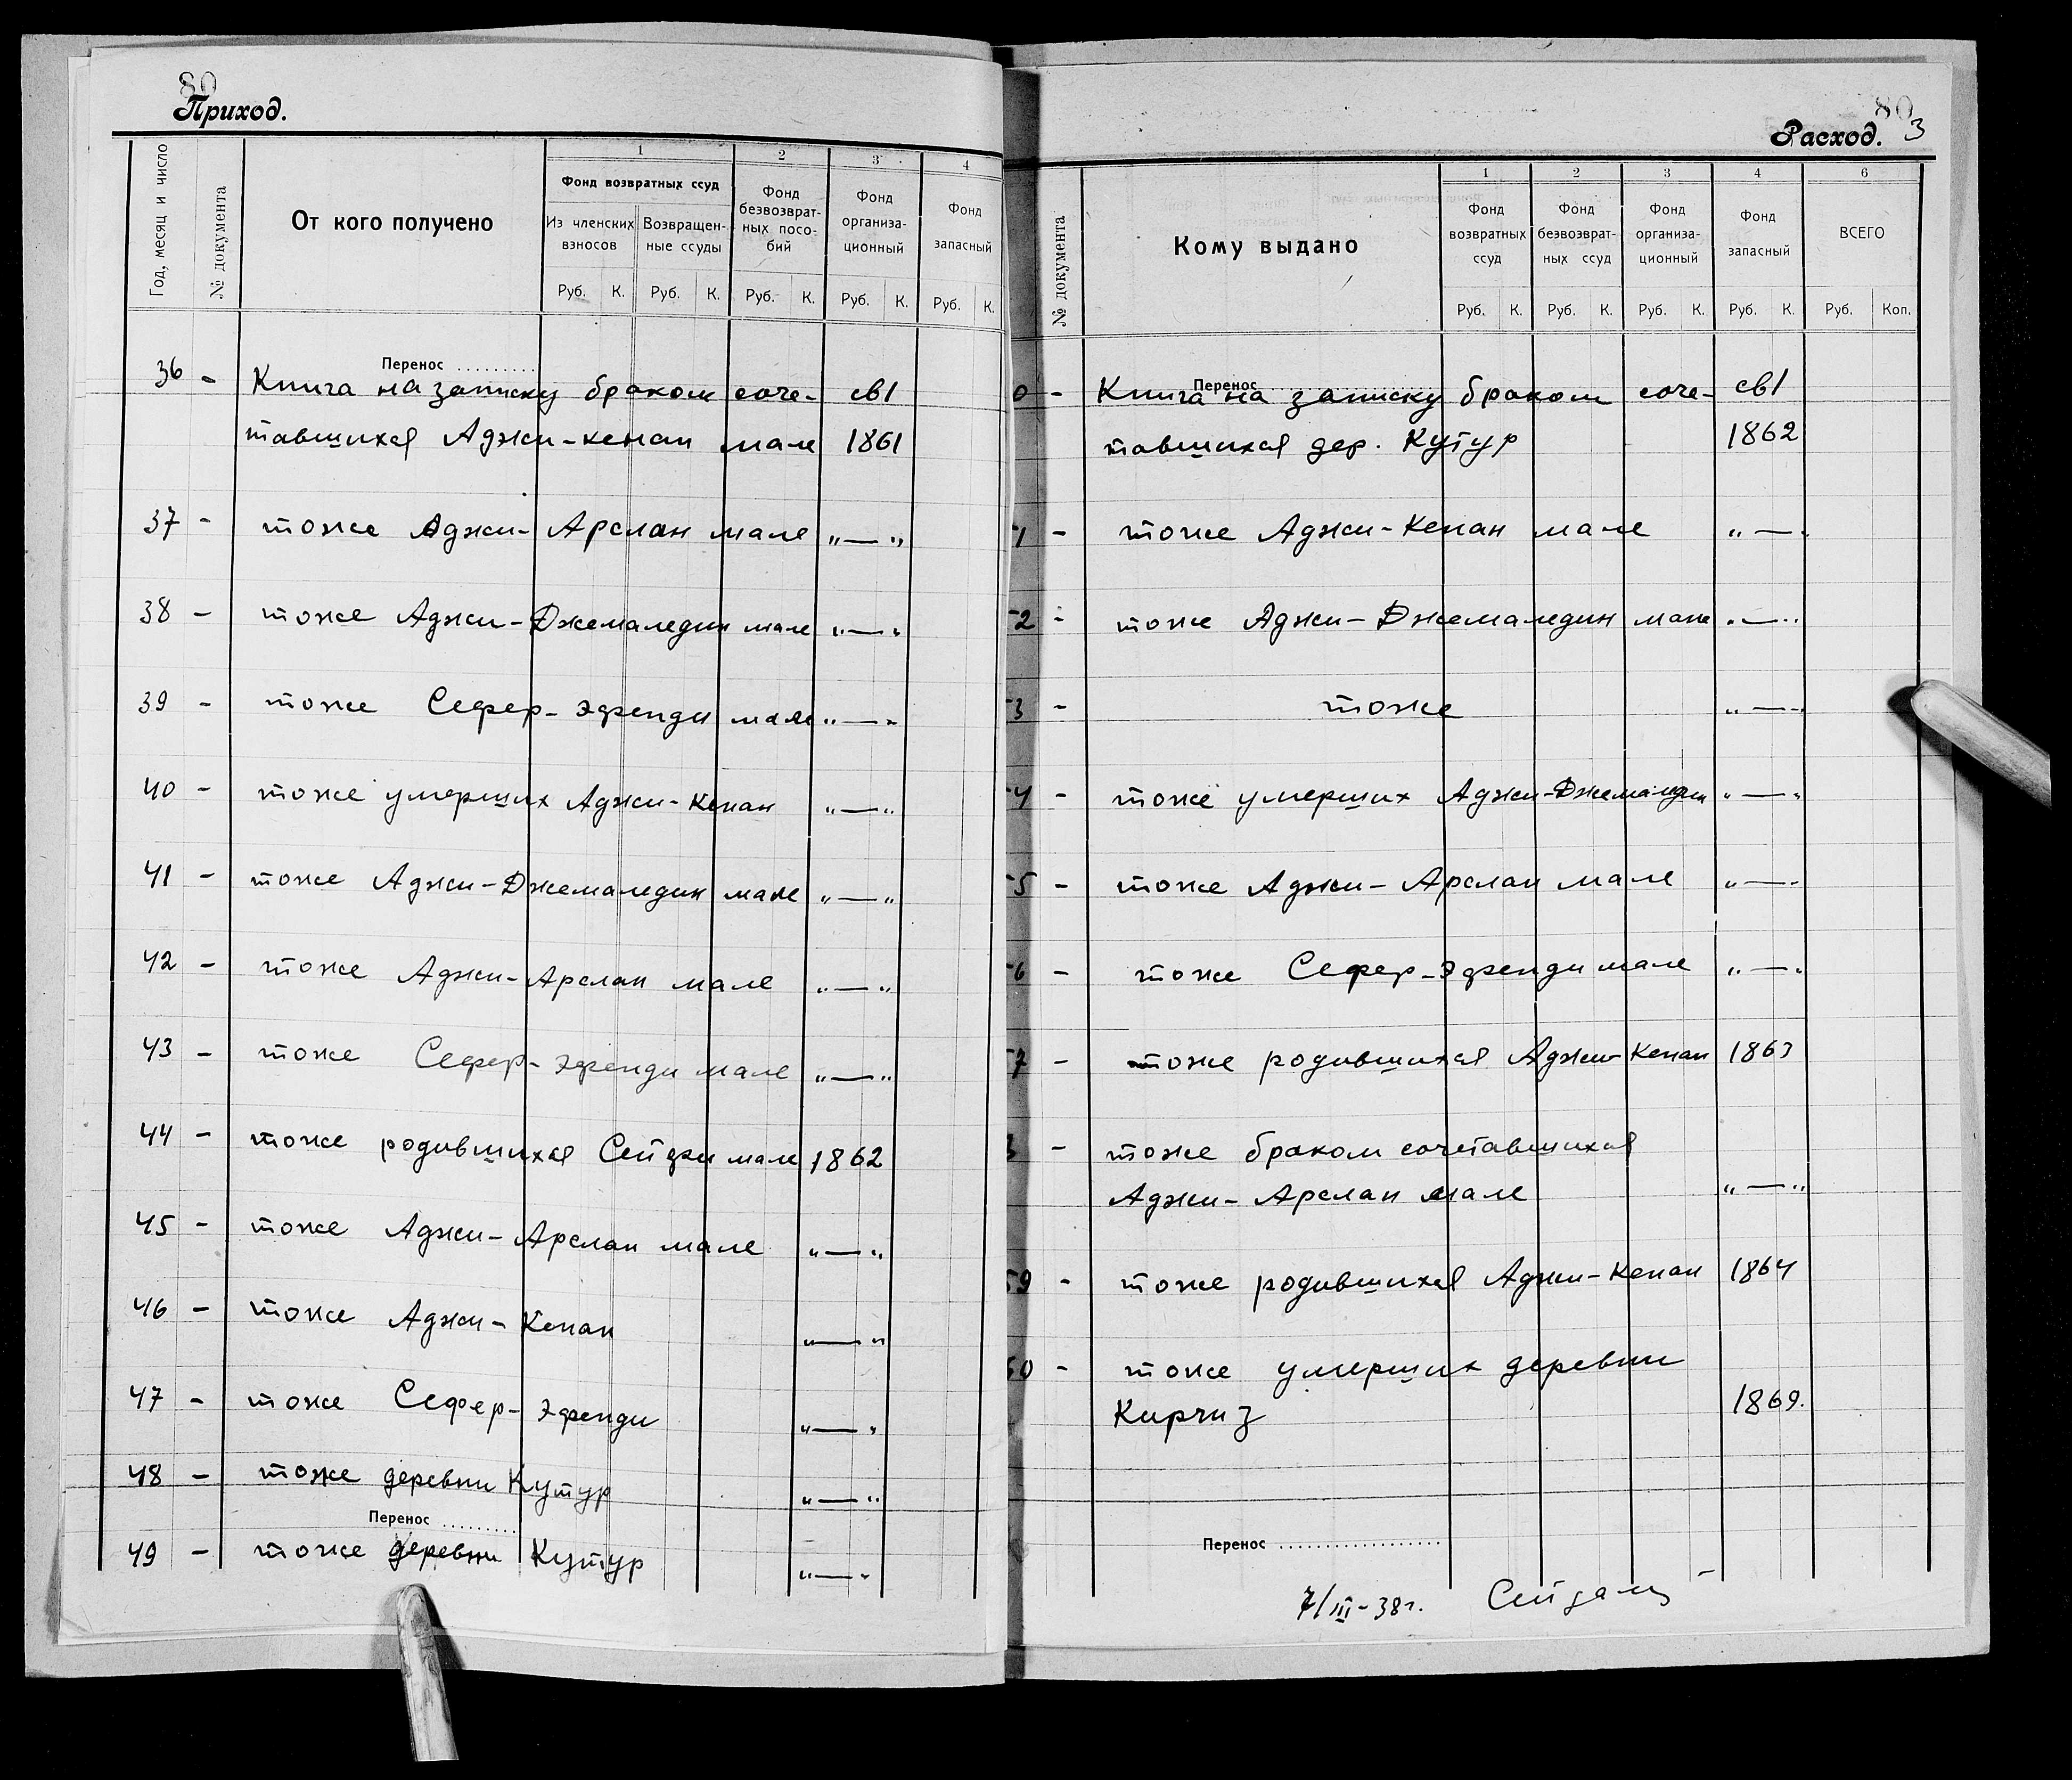 80
Приход.
Год, месяц и число
№ документа
От кого получено
1
Фонд возвратных ссуд
Из членских взносов
Возвращен-ные ссуды
2
Фонд безвозврат-ных посо-бий
3
Фонд организа-ционный
4
Фонд запасный
Руб. К. Руб. К. Руб. К. Руб. К. Руб. К.
Перенос
36 - Книга на записку браком соче- св 1
тавшихся Аджи-кенан мале 1861
37 - тоже Аджи-Арслан мале „—„
38 - тоже Аджи-Джемаледин мале „—„
39 - тоже Сефер-эфенди мале „—„
40 - тоже умерших Аджи-Кенан „—„
41 - тоже Аджи-Джемаледин мале „—„
42 - тоже Аджи-Арслан мале „—„
43 - тоже Сефер-эфенди мале „—„
44 - тоже родившихся мале 1862
45 - тоже Аджи-Арслан мале „—„
46 - тоже Аджи-Кенан „—„
47 - тоже Сефер-эфенди „—„
48 - тоже деревни Кутур „—„
Перенос
49 - тоже деревни Кутур „—„
80
3
Расход.
№ документа
Кому выдано
1
Фонд возвратных ссуд
2
Фонд безвозврат-ных ссуд
3
Фонд организа-ционный
4
Фонд запасный
6
ВСЕГО
Руб. К. Руб. К. Руб. К. Руб. К. Руб. Коп.
Перенос
0 - Книга на записку браком соче- св 1
тавшихся дер. Кутур 1862
1 - тоже Аджи-Кенан мале „—„
2 - тоже Аджи-Джемаледин мале „—„
3 - тоже „—„
4 - тоже умерших Аджи-Джемаледин „—„
5 - тоже Аджи-Арслан мале „—„
6 - тоже Сефер-эфенди мале „—„
7 - тоже родившихся Аджи-Кенан 1863
- тоже браком сочетавшихся
Аджи-Арслан мале „—„
59 - тоже родившихся Аджи-Кенан 1864
60 - тоже умерших деревни
Киргиз 1869.
Перенос
7/III-38г.